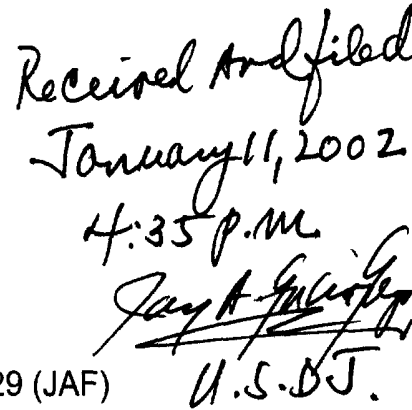 Received and filed
January 11, 2002
4:35 p.m.
Jay A.
29 (JAF)
U.S.D.J.